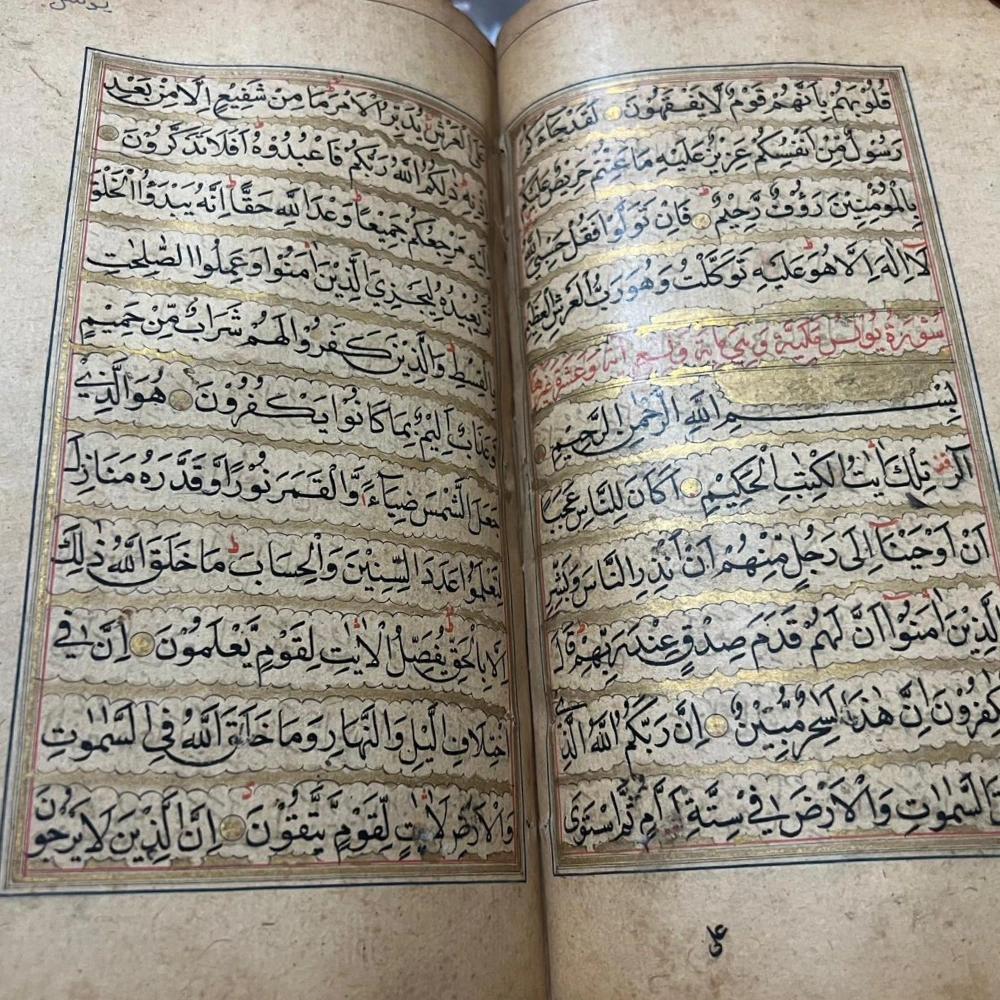 قُلُوبَهُمْ بِاَنَّهُمْ قَوْمٌ لَا يَفْقَهُونَ لَقَدْ جَاءَكُمْ
رَسُولٌ مِّنْ اَنْفُسِكُمْ عَزِيزٌ عَلَيْهِ مَا عَنِتُّمْ حَرِيصٌ عَلَيْكُمْ
بِالْمُؤْمِنِينَ رَؤُفٌ رَّحِيمٌ فَاِنْ تَوَلَّوْا فَقُلْ حَسْبِيَ اللّٰهُ
لَا اِلٰهَ اِلَّا هُوَ عَلَيْهِ تَوَكَّلْتُ وَهُوَ رَبُّ الْعَرْشِ الْعَظِيمِ
سُوْرَةُ يُونُسَ مَكِّيَّة وَهِيَ مائة وتسع اية
بِسْمِ اللّٰهِ الرَّحْمٰنِ الرَّحِيْمِ
الٓرٰ تِلْكَ اٰيٰتُ الْكِتٰبِ الْحَكِيْمِ اَكَانَ لِلنَّاسِ عَجَبًا
اَنْ اَوْحَيْنَا اِلٰى رَجُلٍ مِّنْهُمْ اَنْ اَنْذِرِ النَّاسَ وَبَشِّرِ
الَّذِيْنَ اٰمَنُوْا اَنَّ لَهُمْ قَدَمَ صِدْقٍ عِنْدَ رَبِّهِمْ قَالَ
الْكٰفِرُوْنَ اِنَّ هٰذَا لَسٰحِرٌ مُّبِيْنٌ اِنَّ رَبَّكُمُ اللّٰهُ الَّذِيْ
السَّمٰوٰتِ وَالْاَرْضَ فِيْ سِتَّةِ اَيَّامٍ ثُمَّ اسْتَوٰى
علی
يونس
عَلَى الْعَرْشِ يُدَبِّرُ الْاَمْرَ مَا مِنْ شَفِيْعٍ اِلَّا مِنْ بَعْدِ
اِذْنِهٖ ذٰلِكُمُ اللّٰهُ رَبُّكُمْ فَاعْبُدُوْهُ اَفَلَا تَذَكَّرُوْنَ
اِلَيْهِ مَرْجِعُكُمْ جَمِيْعًا وَعْدَ اللّٰهِ حَقًّا اِنَّهٗ يَبْدَؤُا الْخَلْقَ
ثُمَّ يُعِيْدُهٗ لِيَجْزِيَ الَّذِيْنَ اٰمَنُوْا وَعَمِلُوا الصّٰلِحٰتِ
بِالْقِسْطِ وَالَّذِيْنَ كَفَرُوْا لَهُمْ شَرَابٌ مِّنْ حَمِيْمٍ
وَّعَذَابٌ اَلِيْمٌ بِمَا كَانُوْا يَكْفُرُوْنَ هُوَ الَّذِيْ
جَعَلَ الشَّمْسَ ضِيَاءً وَّالْقَمَرَ نُوْرًا وَّقَدَّرَهٗ مَنَازِلَ
لِتَعْلَمُوْا عَدَدَ السِّنِيْنَ وَالْحِسَابَ مَا خَلَقَ اللّٰهُ ذٰلِكَ
اِلَّا بِالْحَقِّ يُفَصِّلُ الْاٰيٰتِ لِقَوْمٍ يَّعْلَمُوْنَ اِنَّ فِي
اخْتِلَافِ الَّيْلِ وَالنَّهَارِ وَمَا خَلَقَ اللّٰهُ فِي السَّمٰوٰتِ
وَالْاَرْضِ لَاٰيٰتٍ لِّقَوْمٍ يَّتَّقُوْنَ اِنَّ الَّذِيْنَ لَا يَرْجُوْنَ